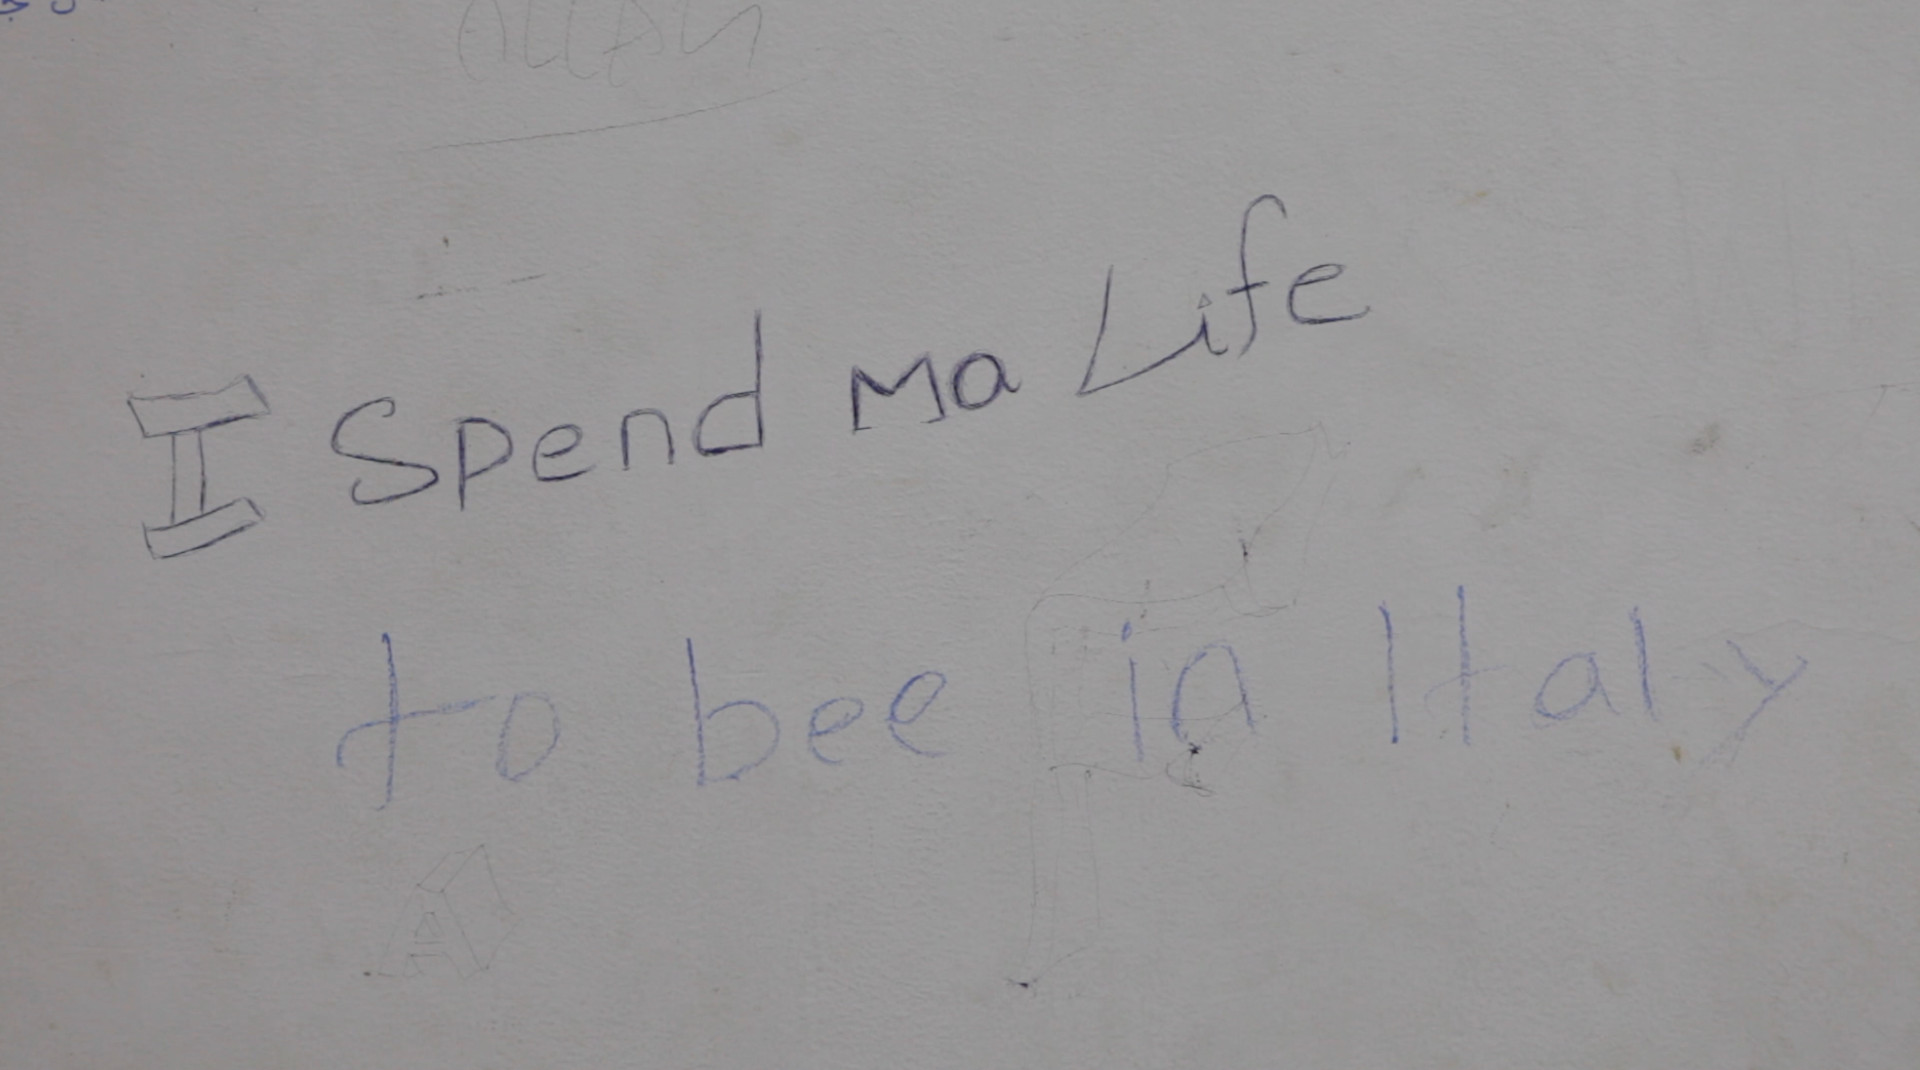 ALLAH
I Spend Ma Life
to bee in Italy
A